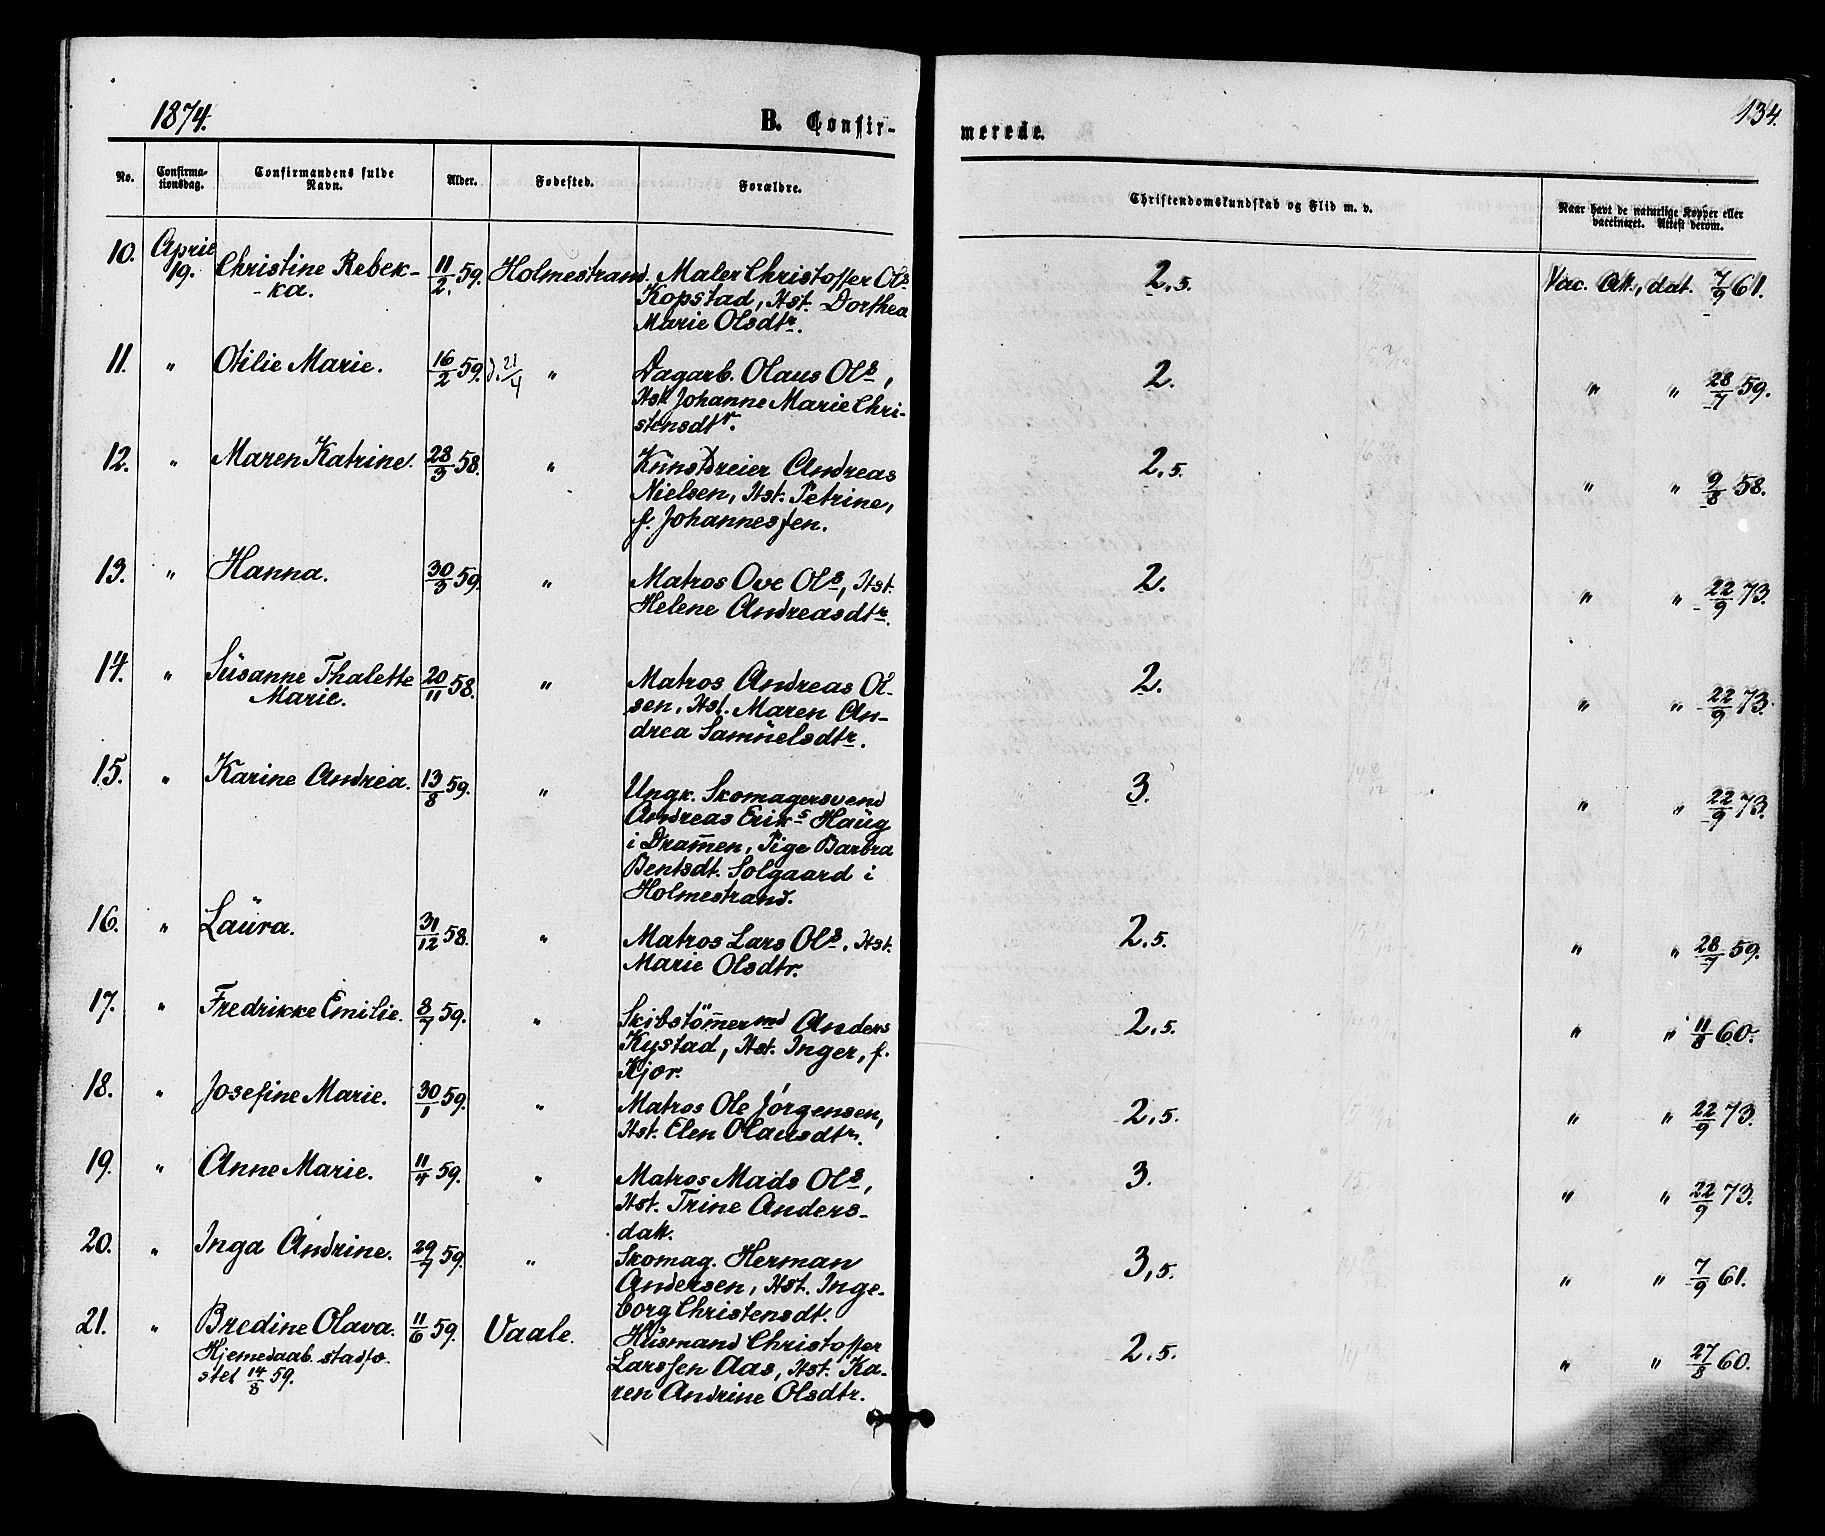 1874.
B. Confir-
merede.
134.
No.
Confirma-
tionsdag.
Confirmandens fulde
Navn.
Alder.
Fødested.
Forældre.
Christendomskundskab og Flid m. v.
Naar havt de naturlige Kopper eller
vaccineret. Attest derom.
10. April 19. Christine Rebek-
-ka. 11/2 59. Holmestrand. Maler Christoffer Ols
Kopstad, Hst. Dorthea
Marie Olsdtr. 2,5. Vac. Att., dat. 7/9 61.
11. " Otilie Marie. 16/2 59. d. 21/4 " Dagarb. Olaus Ols,
Hst. Johanne Marie Chri-
stensdtr. 2. " " 28/7 59.
12. " Maren Katrine. 28/3 58. " Kunstdreier Andreas
Nielsen, Hst. Petrine,
f. Johannessen. 2,5. " " 9/8 58.
13. " Hanna. 30/3 59. " Matros Ove Ols, Hst.
Helene Andreasdtr. 2. " " 22/9 73.
14. " Susanne Thalette
Marie. 20/11 58. " Matros Andreas Ol-
sen, Hst. Maren An-
drea Samuelsdtr. 2. " " 22/9 73.
15. " Karine Andrea. 13/8 59. " Ungk. Skomagersvend
Andreas Eriks Haug
i Dramen, Pige Barbra
Bentsdt. Solgaard i
Holmestrand. 3. " " 22/9 73.
16. " Laura. 31/12 58. " Matros Lars Ols, Hst.
Marie Olsdtr. 2,5. " " 28/7 59.
17. " Fredrikke Emilie. 8/7 59. " Skibstömermd Anders
Kystad, Hst. Inger, f.
Kjær. 2,5. " " 11/8 60.
18. " Josefine Marie. 30/1 59. " Matros Ole Jörgensen,
Hst. Elen Olausdtr. 2,5. " " 22/9 73.
19. " Anne Marie. 11/4 59. " Matros Mads Ols,
Hst. Trine Anders-
datt. 3. " " 22/9 73.
20. " Inga Andrine. 29/7 59. " Skomag. Herman
Andersen, Hst. Inge-
borg Christensdt. 3,5. " " 7/9 61.
21. " Bredine Olava. 11/6 59. Vaale. Husmand Christoffer
Hjemedaab stadfæ-
stet 14/8 59.
Larssen Aas, Hst. Ka-
ren Andrine Olsdtr. 2,5. " " 27/8 60.